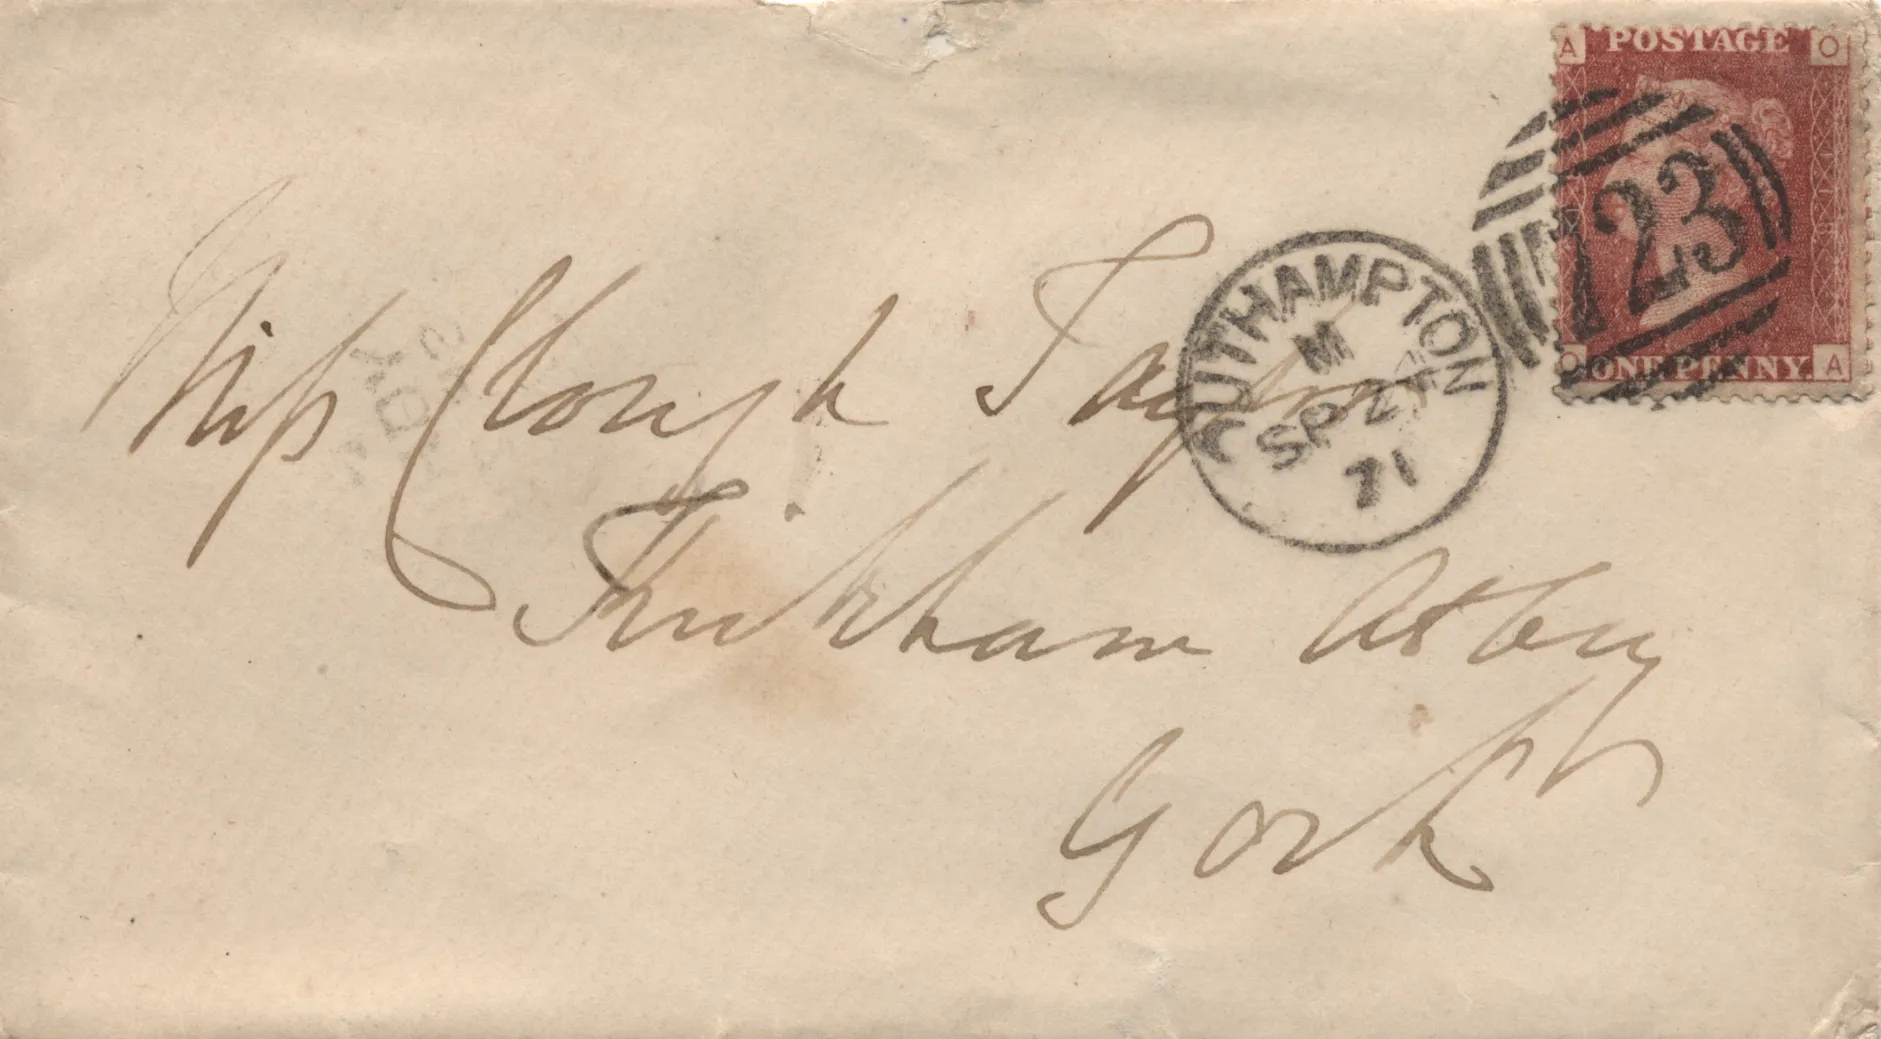 POSTAGE
A O
723
O ONE PENNY. A
SOUTHAMPTON
M
SP 27
71
Miss Clough Taylor
Firkham Abbey
York